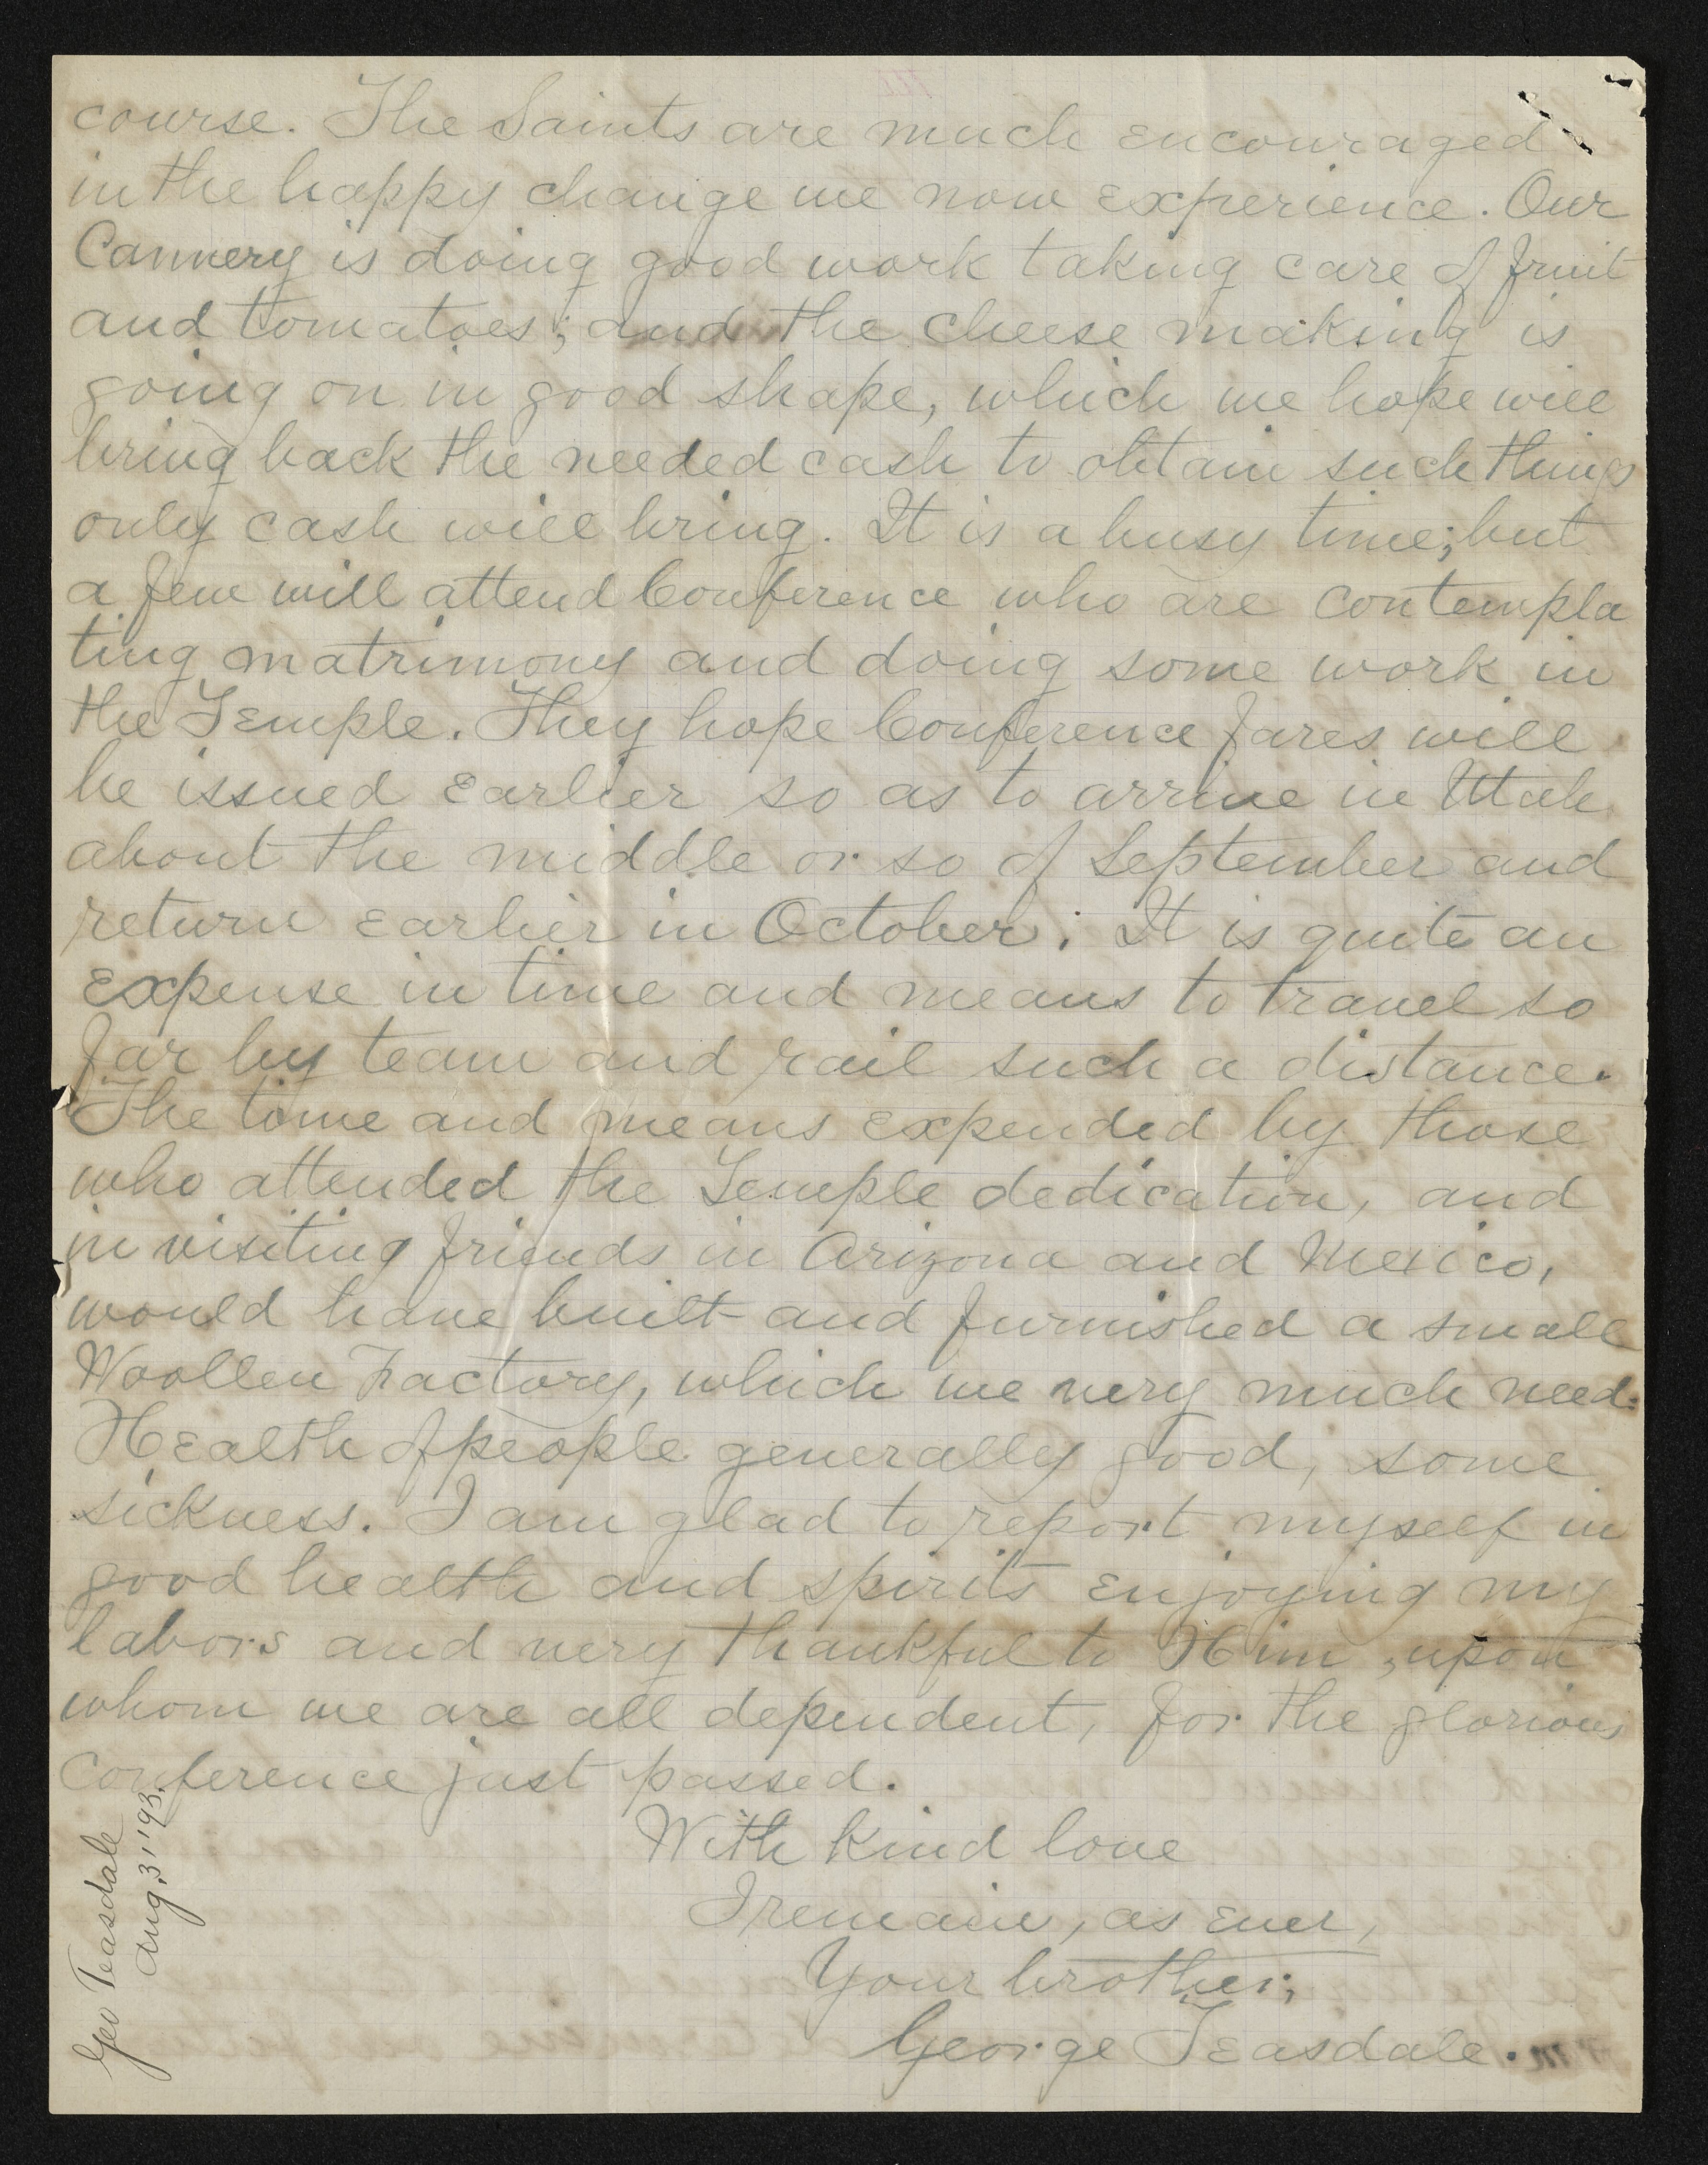 course. The Saints are much encouraged
in the happy change we now experience. Our
Cannery is doing good work taking care of fruit
and tomatoes; and the cheese making is
going on in good shape, which we hope will
bring back the needed cash to obtain such things
only cash will bring. It is a busy time; but
a few will attend Conference who are contempla
ting matrimony and doing some work in
the Temple. They hope Conference fares will
be issued earlier so as to arrive in Utah
about the middle or so of September and
return earlier in October; It is quite an
expense in time and means to travel so
far by team and rail such a distance.
The time and means expended by those
who attended the Temple dedication, and
in visiting friends in Arizona and Mexico,
would have built and furnished a small
Woollen Factory, which we very much need.
Health of people generally good, some
sickness. I am glad to report myself in
good health and spirits enjoying my
labors and very thankful to Him, upon
whom we are all dependent, for the glorious
Conference just passed.
With kind love
I remain, as ever,
Your brother;
George Teasdale.
Geo Teasdale
Aug. 31 '93.